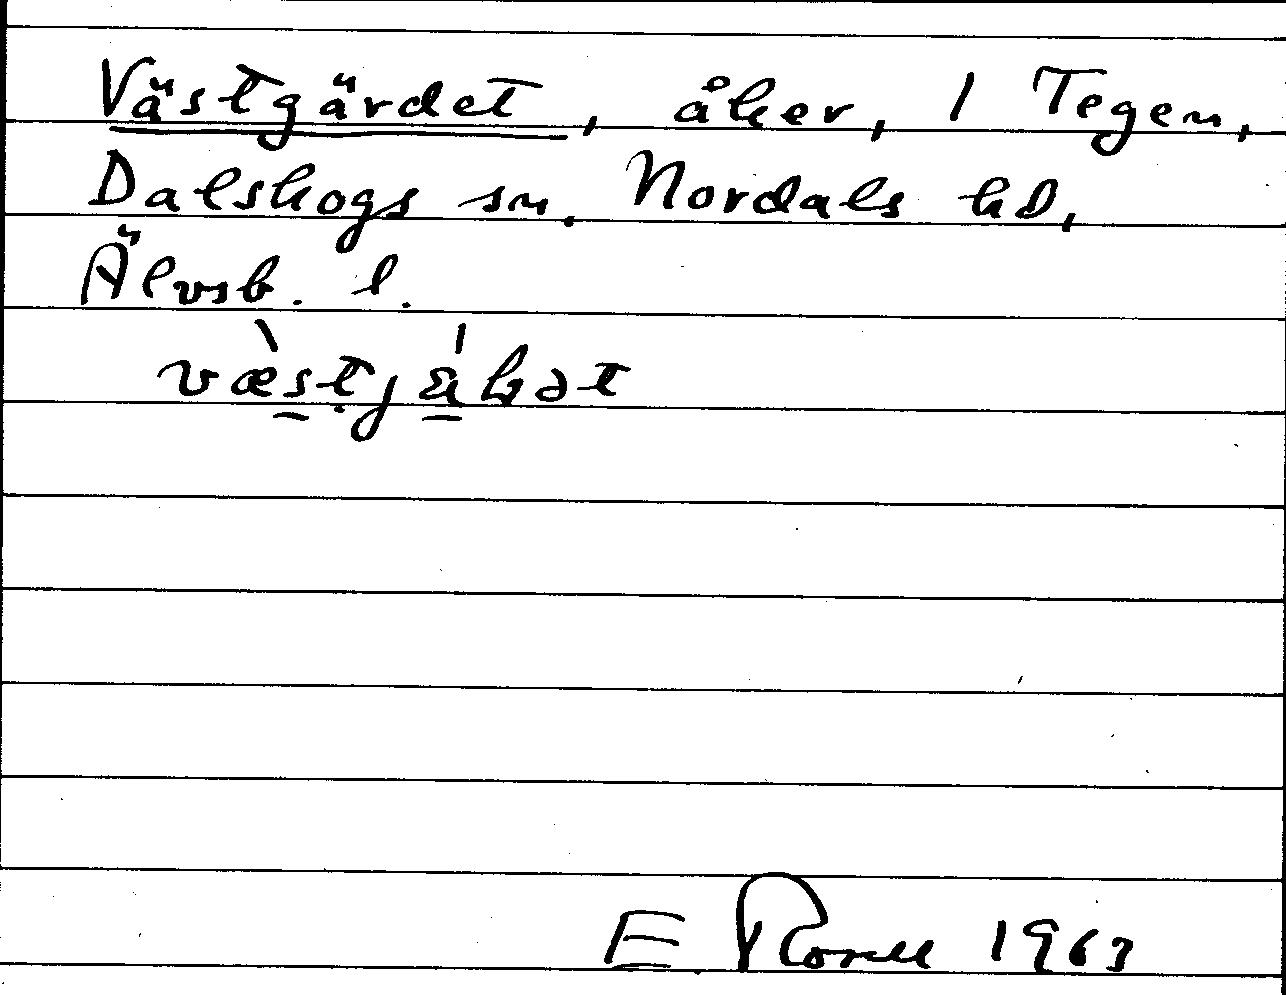 Västgärdet, åker, 1 Tegen,
Dalskogs sn. Nordals hd,
Älvsb. l.
E Rosell 1963